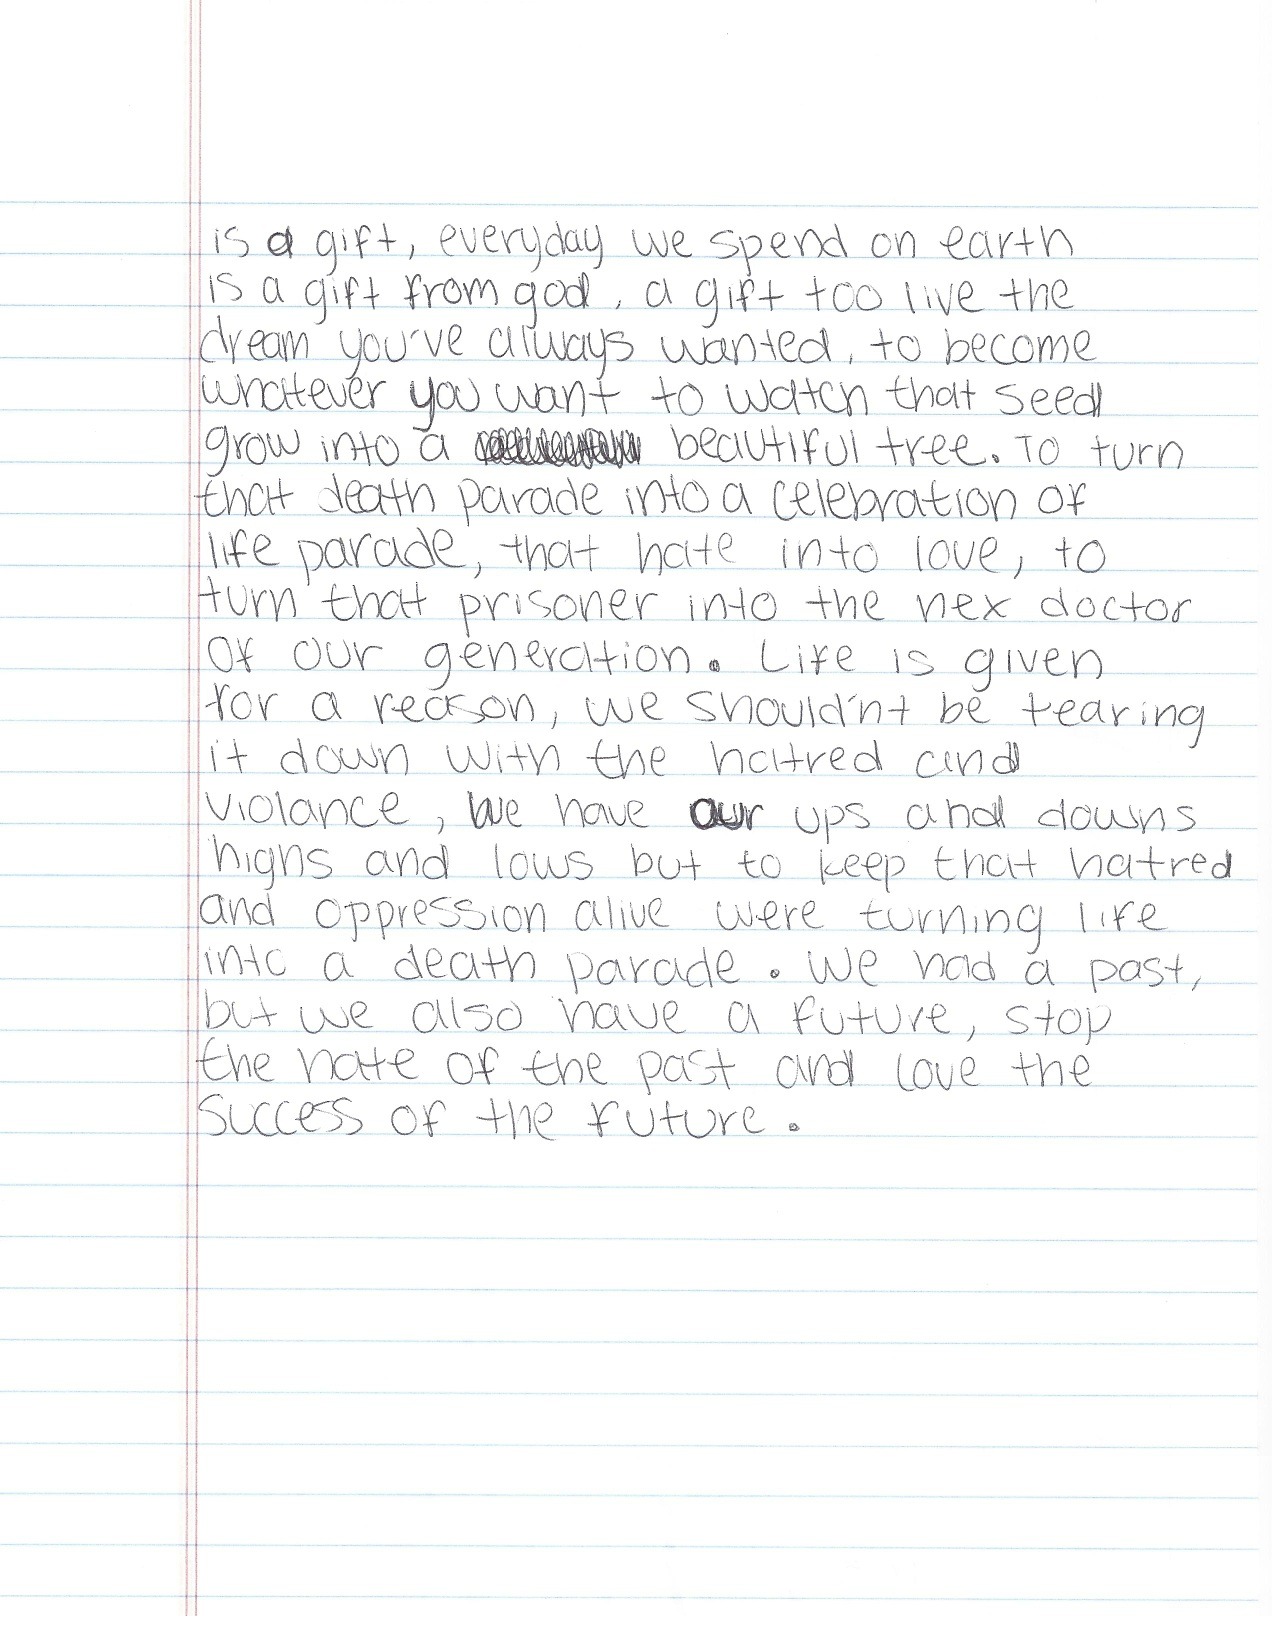 is a gift, everyday we spend on earth
is a gift from god, a gift too live the
dream you've always wanted, to become
whatever you want to watch that seed
grow into a beautiful tree. To turn
that death parade into a celebration of
life parade, that hate into love, to
turn that prisoner into the nex doctor
of our generation. Life is given
for a reason, we should'nt be tearing
it down with the hatred and
violance, We have our ups and downs
highs and lows but to keep that hatred
and oppression alive were turning life
into a death parade. We had a past,
but we also have a future, stop
the hate of the past and love the
success of the future.